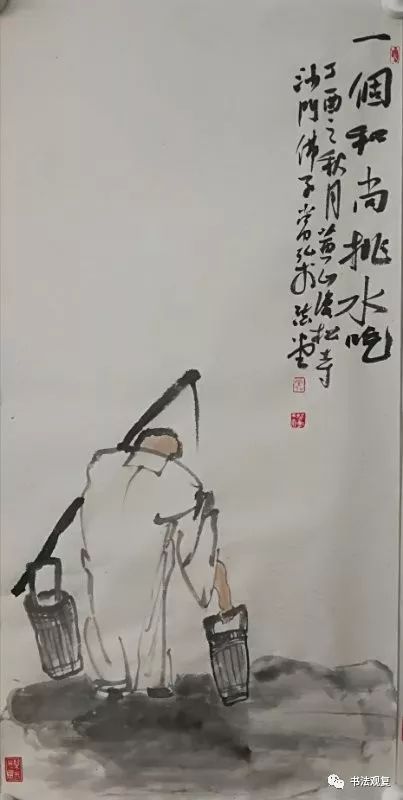 一個和尚挑水吃
丁酉之秋月黄山松寺
沙門佛子常弘於堂
书法观复